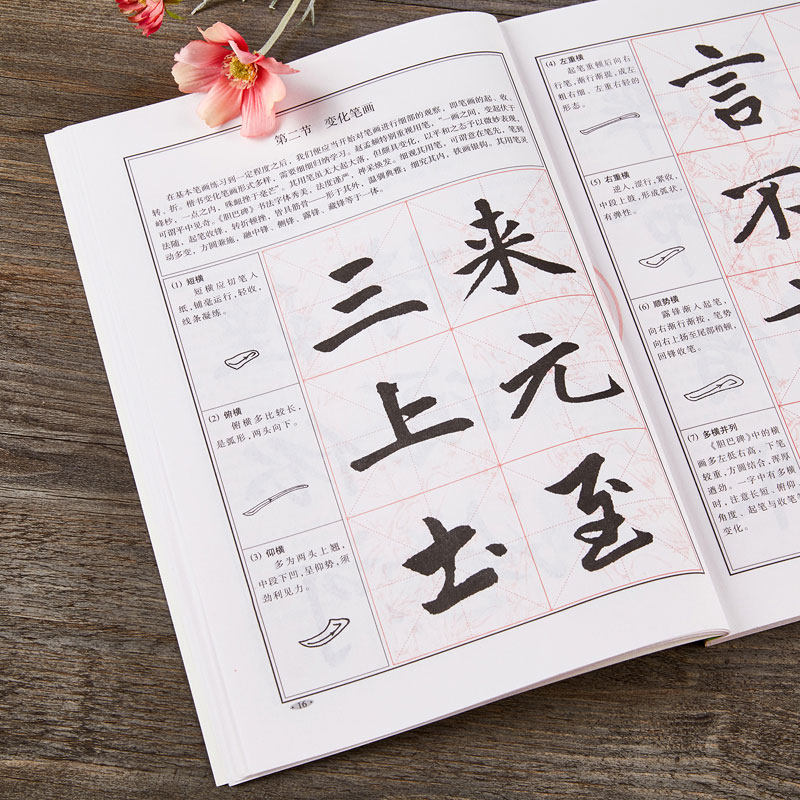 第二节 变化笔画
在基本笔画练习到一定程度之后，我们便应当开始对笔画进行细部的观察，即笔画的起、收、
转、折。楷书变化笔画形式多样，需要细细归纳学习。赵孟頫特别重视用笔，“一画之间，变起伏于
峰杪，一点之内，殊衄挫于毫芒”。其用笔虽无大起大落，但颇具变化，以平和之态予以微妙表现，
可谓平中见奇。《胆巴碑》书法字体秀美，法度谨严，神采焕发。细观其用笔，可谓意在笔先，笔到
法随，起笔收锋，转折顿挫，皆具筋骨一形于其外，温驯典雅；细究其内，铁画银钩。其用笔灵
动多变，方圆兼施，融中锋、侧锋、露锋、藏锋等于一体。
(1) 短横
短横应切笔入
纸，铺毫运行，轻收，
线条凝练。
三 来
(2) 俯横
俯横多比较长，
是弧形，两头向下。
上 元
(3) 仰横
多为两头上翘，
中段下凹，呈仰势，须
劲利见力。
土 至
16
(4) 左重横
起笔重顿后向右
行笔，渐行渐提，成左
粗右细、左重右轻的
形态。
言
(5) 右重横
逆入，涩行，紧收，
中段上鼓，形成弧状，
有弹性。
不
(6) 顺势横
露锋渐入起笔，
向右渐行渐按，笔势
向右上扬至尾部稍顿，
回锋收笔。
(7) 多横并列
《胆巴碑》中的横
画多左低右高，下笔
较重，方圆结合，浑厚
遒劲。一字中有多横
时，注意长短、俯仰
角度、起笔与收笔
变化。